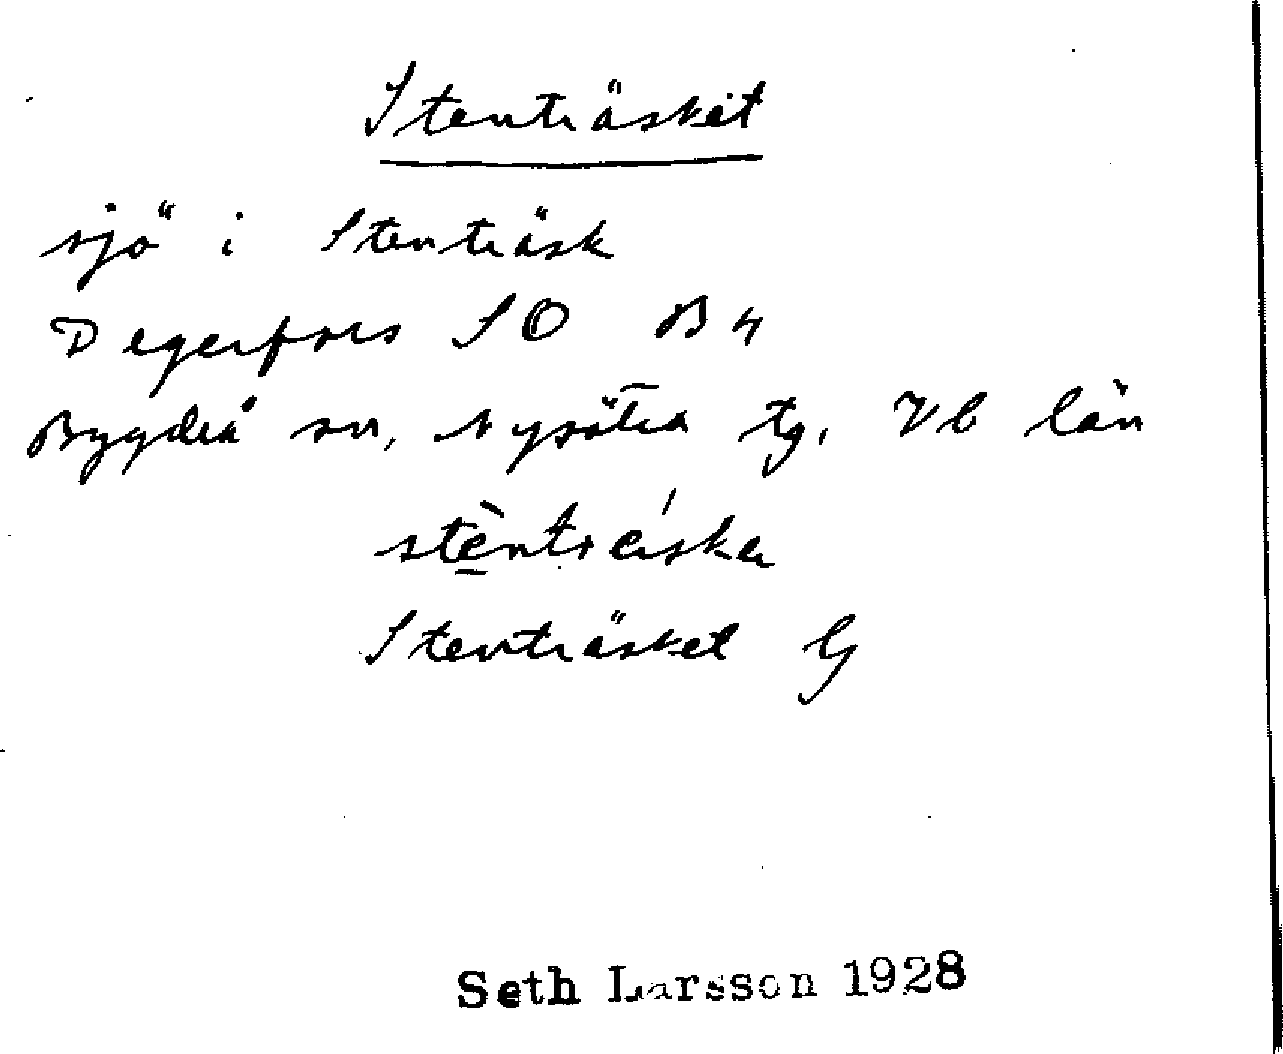 Stenträsket
sjö i Stenträsk
Degerfors SO B 4
Bygdeå sn, Nysätra tg, Vb län
stḕntrǽska
Stenträsket G
Seth Larsson 1928